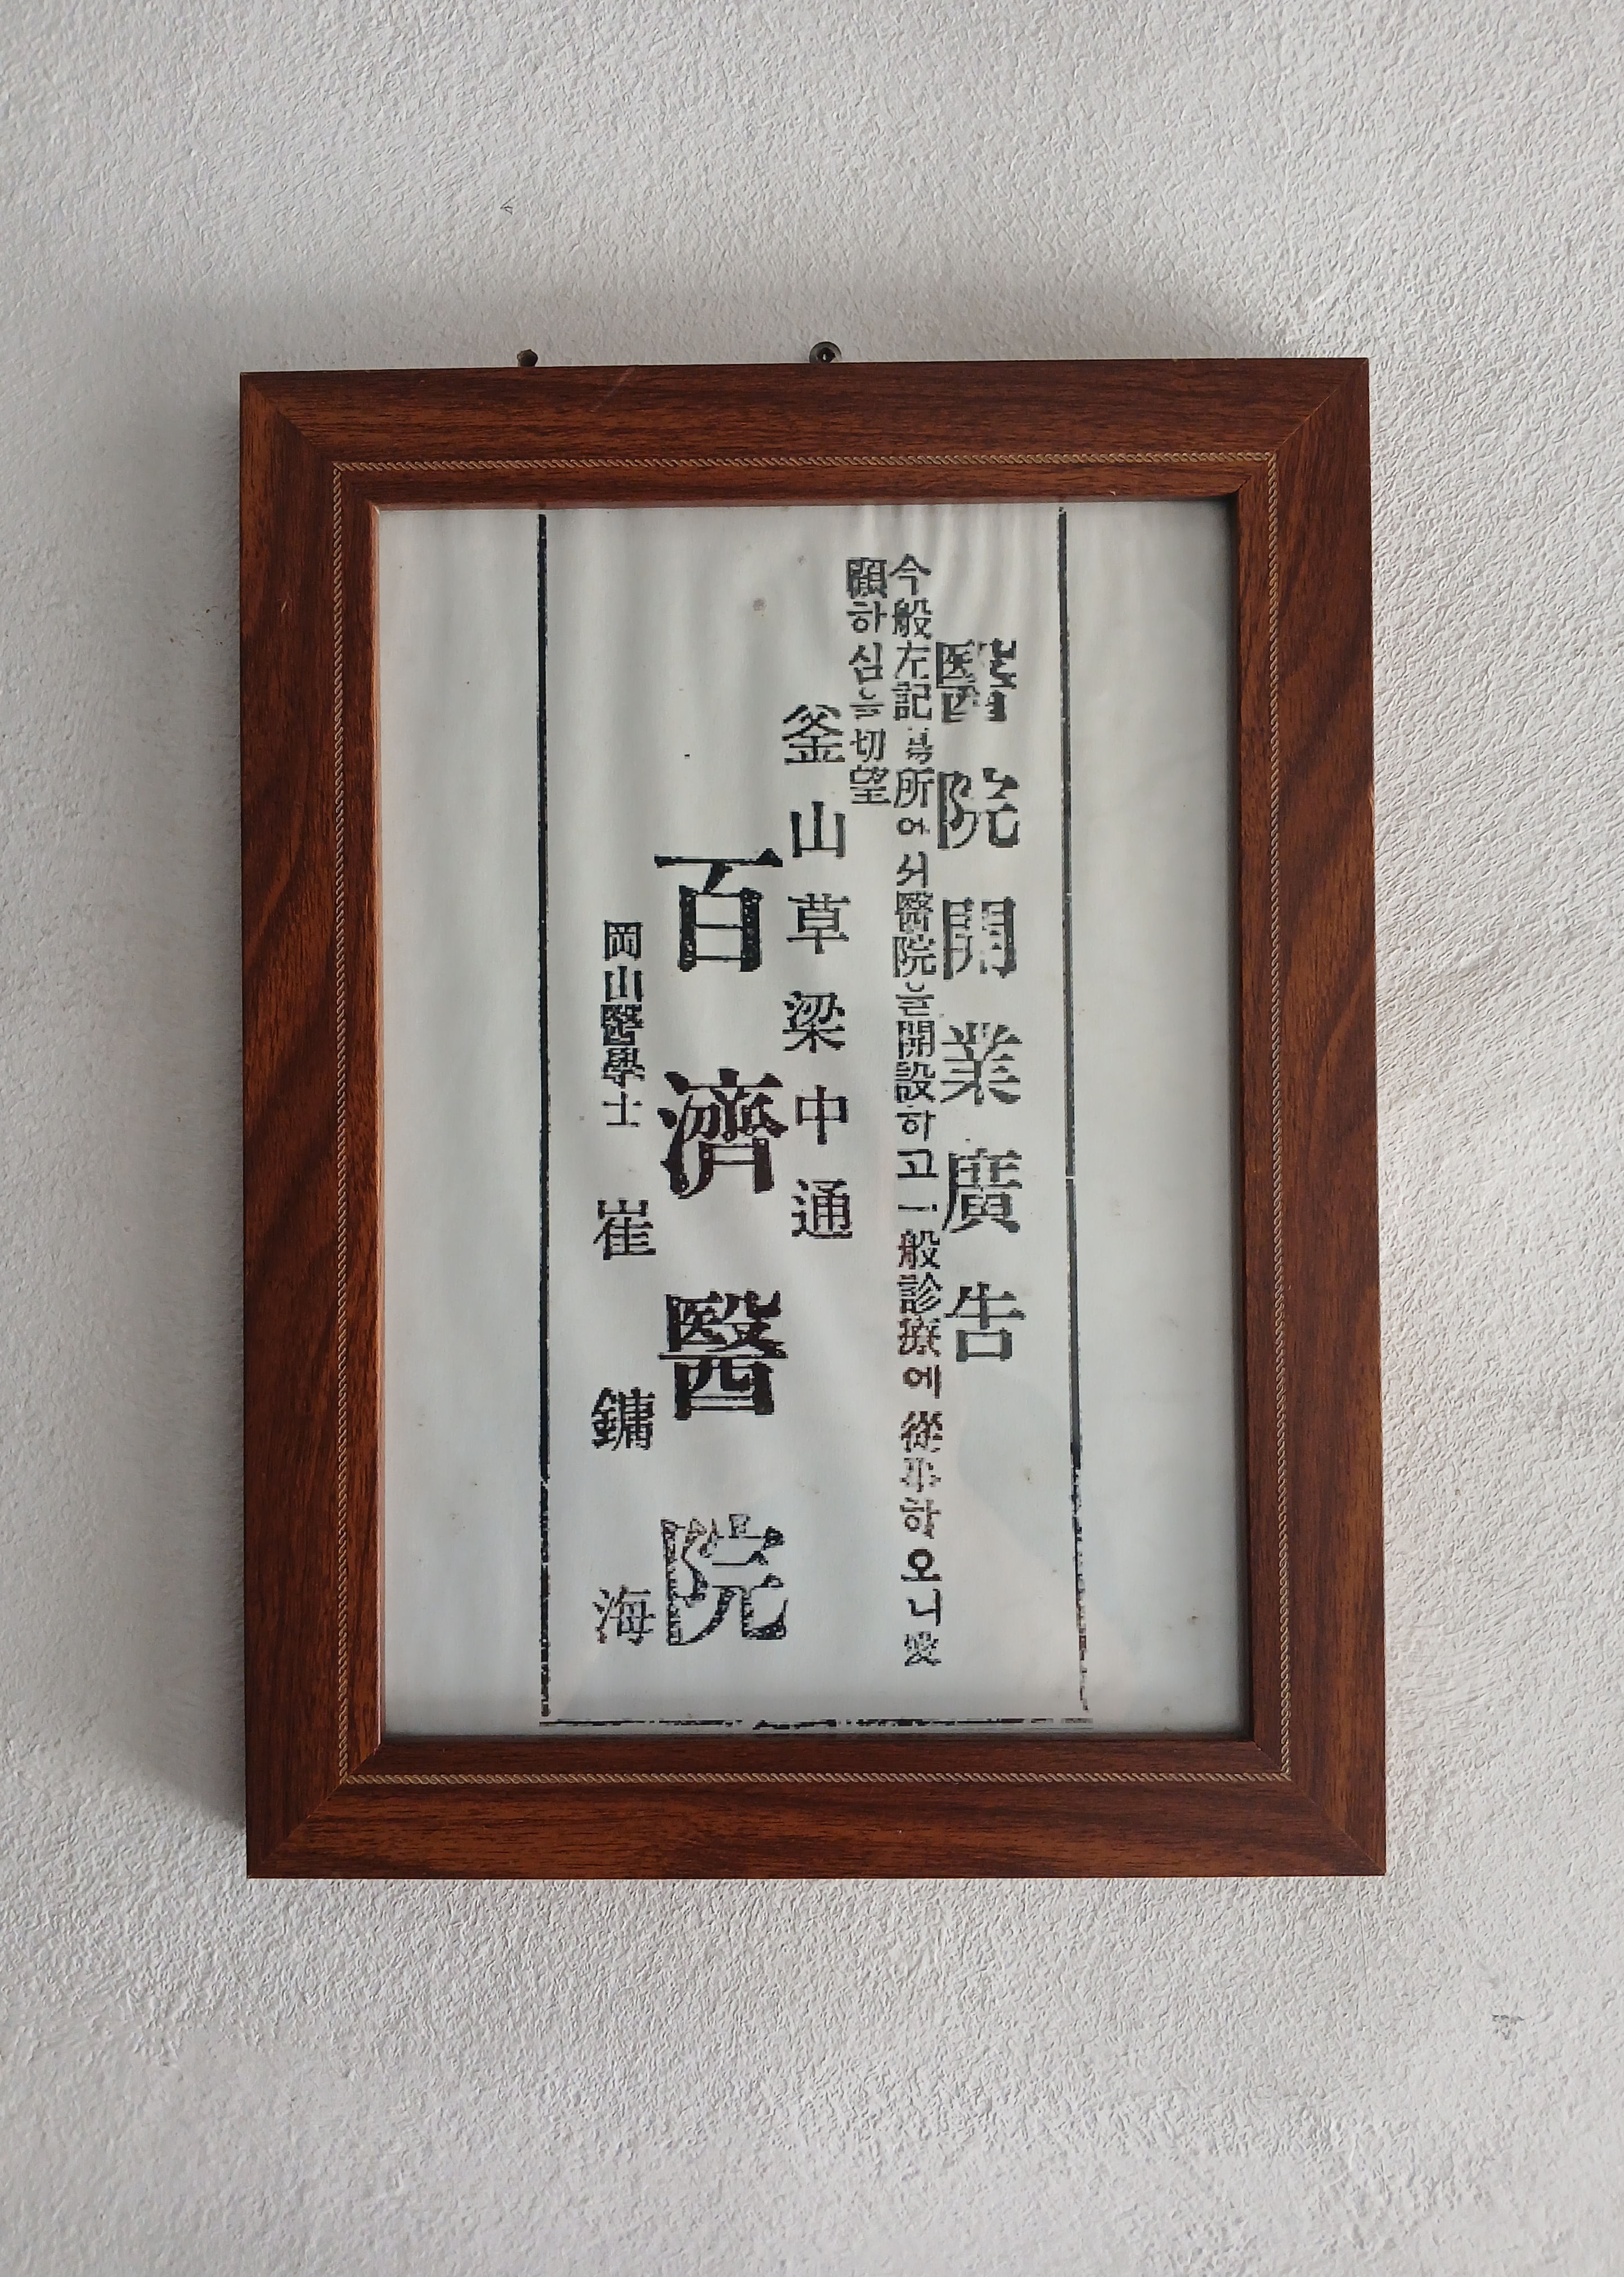 醫院開業廣告
今般左記場所에서醫院을開設하고一般診療에從事하오니愛
顧하심을切望
釜山草梁中通
百濟醫院
岡山醫學士 崔鏞海